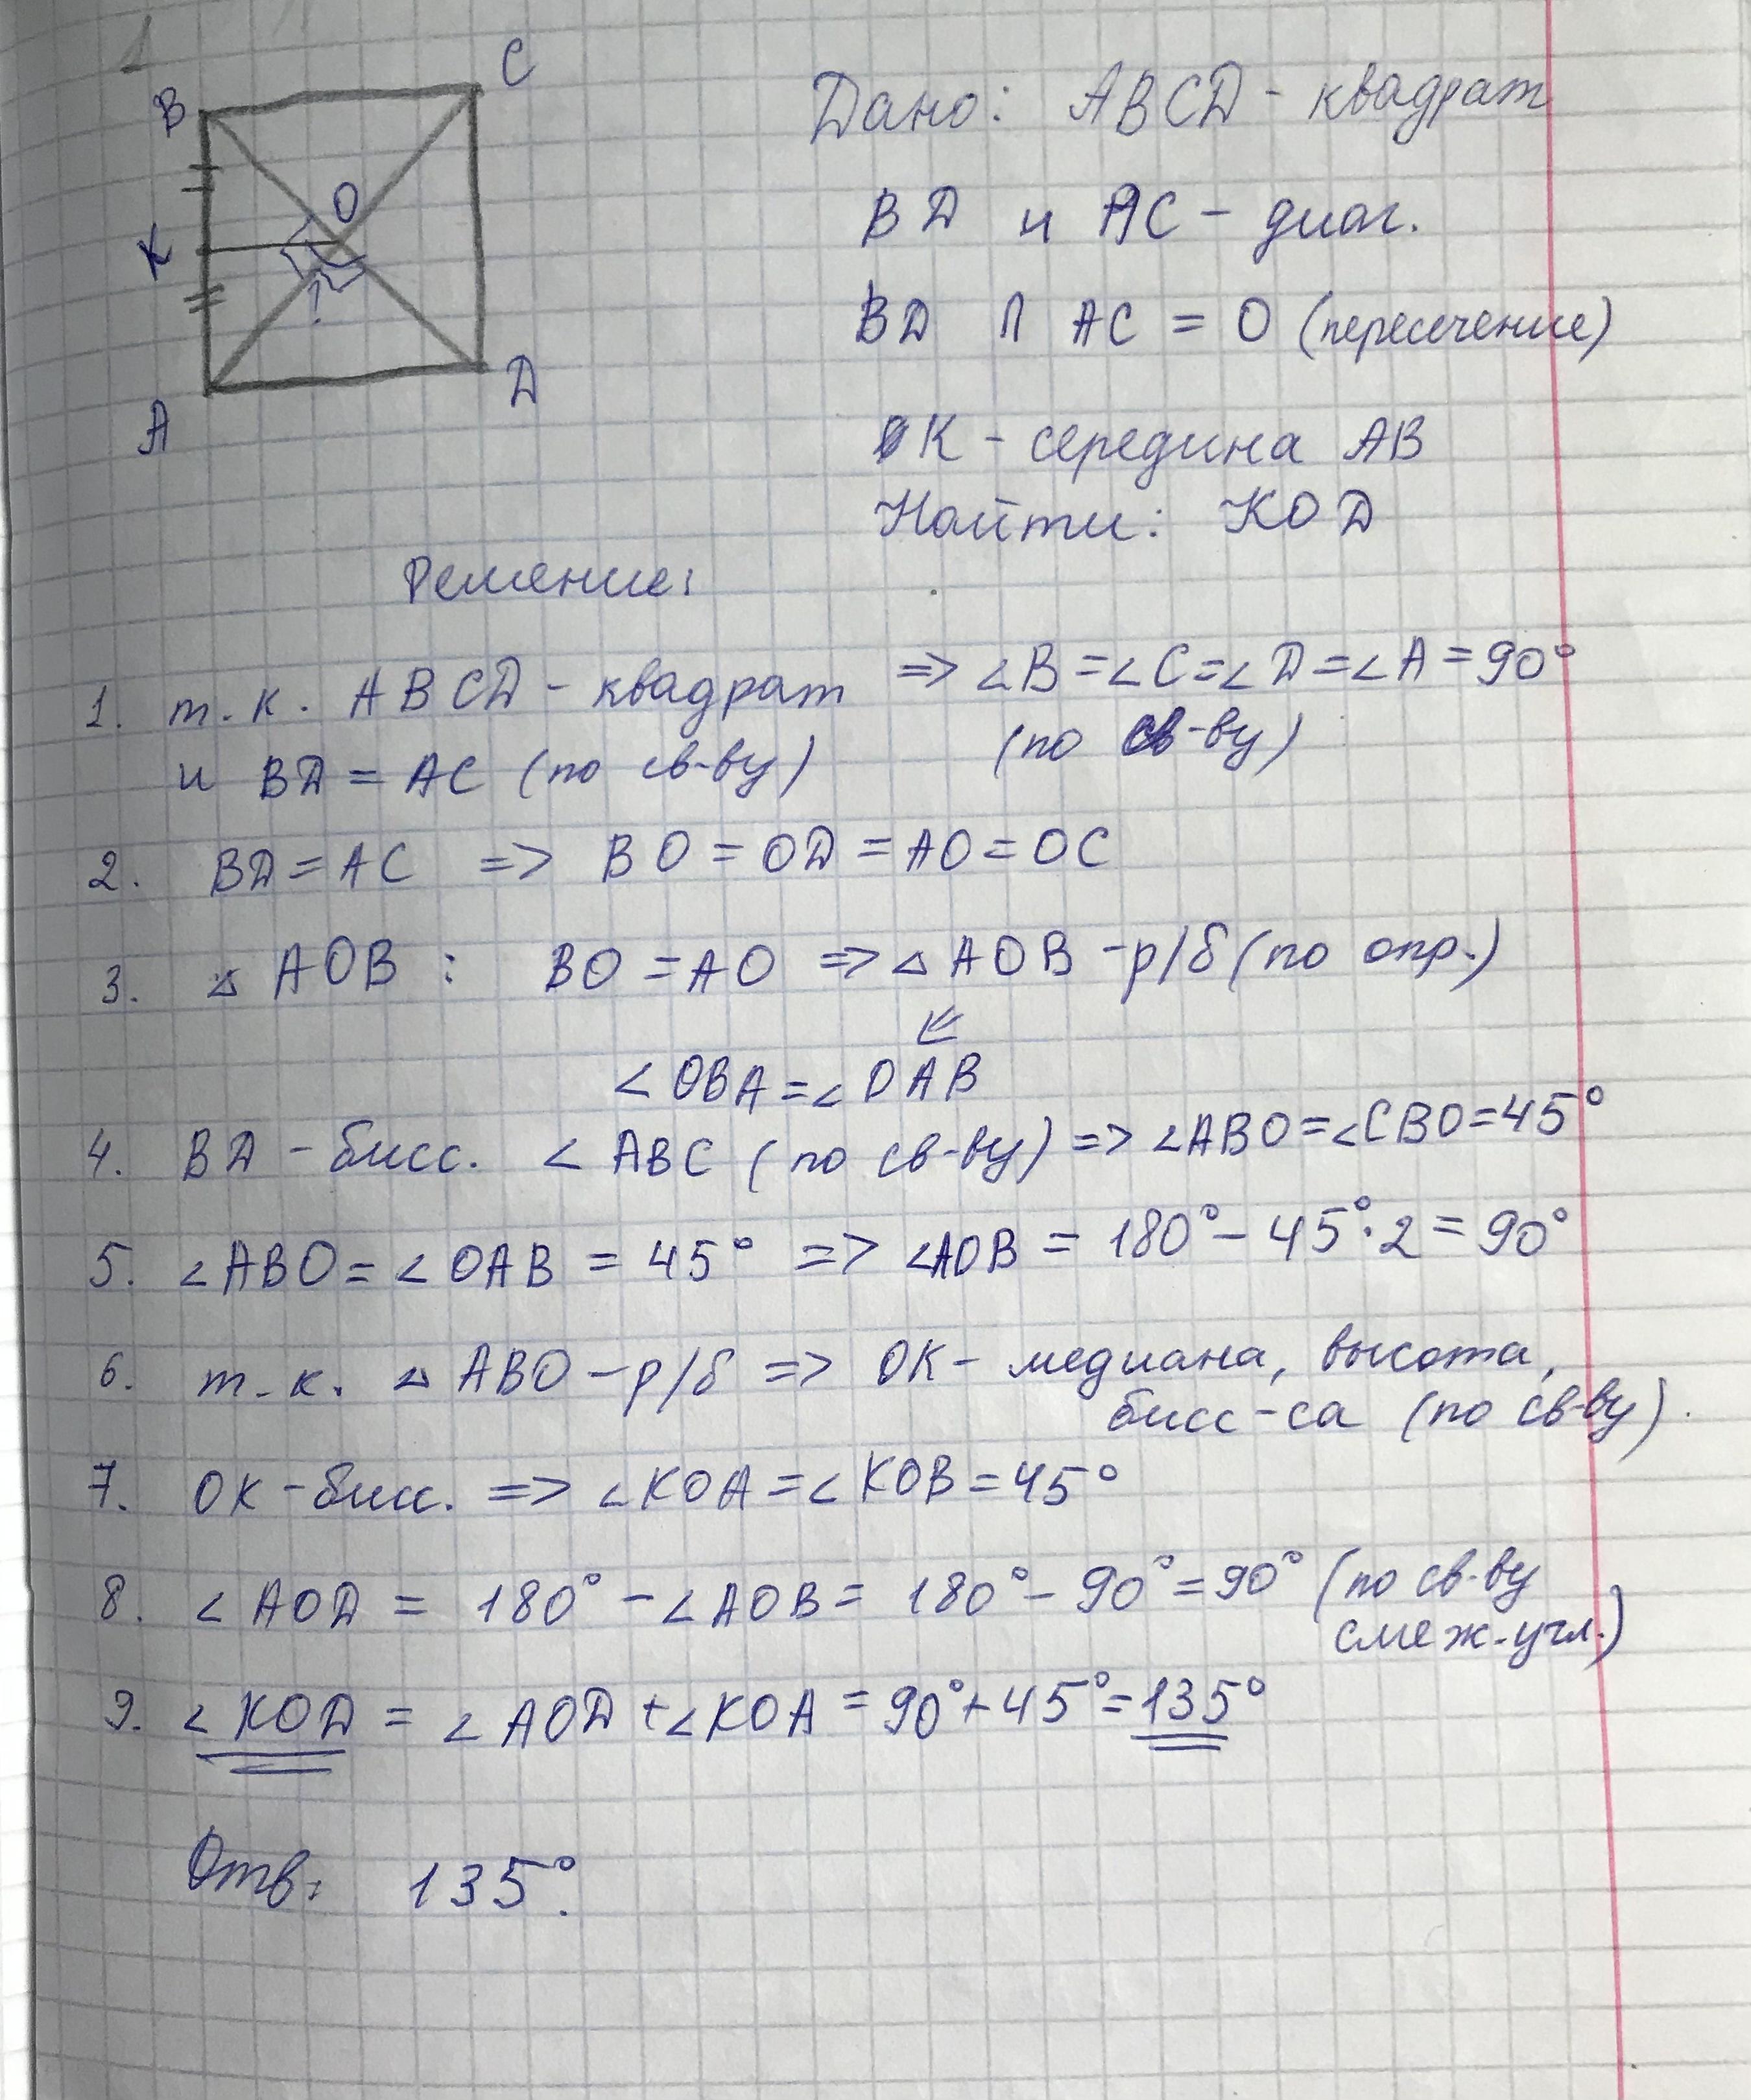 B
C
K
O
?
A
D
Дано: ABCD - квадрат
BD и AC - диаг.
BD ∩ AC = O (пересечение)
K - середина AB
Найти: KOD
Решение:
1. т.к. ABCD - квадрат => ∠B = ∠C = ∠D = ∠A = 90°
(по св-ву)
и BD = AC (по св-ву)
2. BD = AC => BO = OD = AO = OC
3. △ AOB : BO = AO => △ AOB - р/б (по опр.)
⇙
∠OBA = ∠OAB
4. BD - бисс. ∠ ABC (по св-ву) => ∠ABO = ∠CBO = 45°
5. ∠ABO = ∠OAB = 45° => ∠AOB = 180° - 45°·2 = 90°
6. т.к. △ ABO - р/б => OK - медиана, высота,
бисс-са (по св-ву).
7. OK - бисс. => ∠KOA = ∠KOB = 45°
8. ∠AOD = 180° - ∠AOB = 180° - 90° = 90° (по св-ву
смеж. угл.)
9. ∠KOD = ∠AOD + ∠KOA = 90° + 45° = 135°
Отв: 135°.